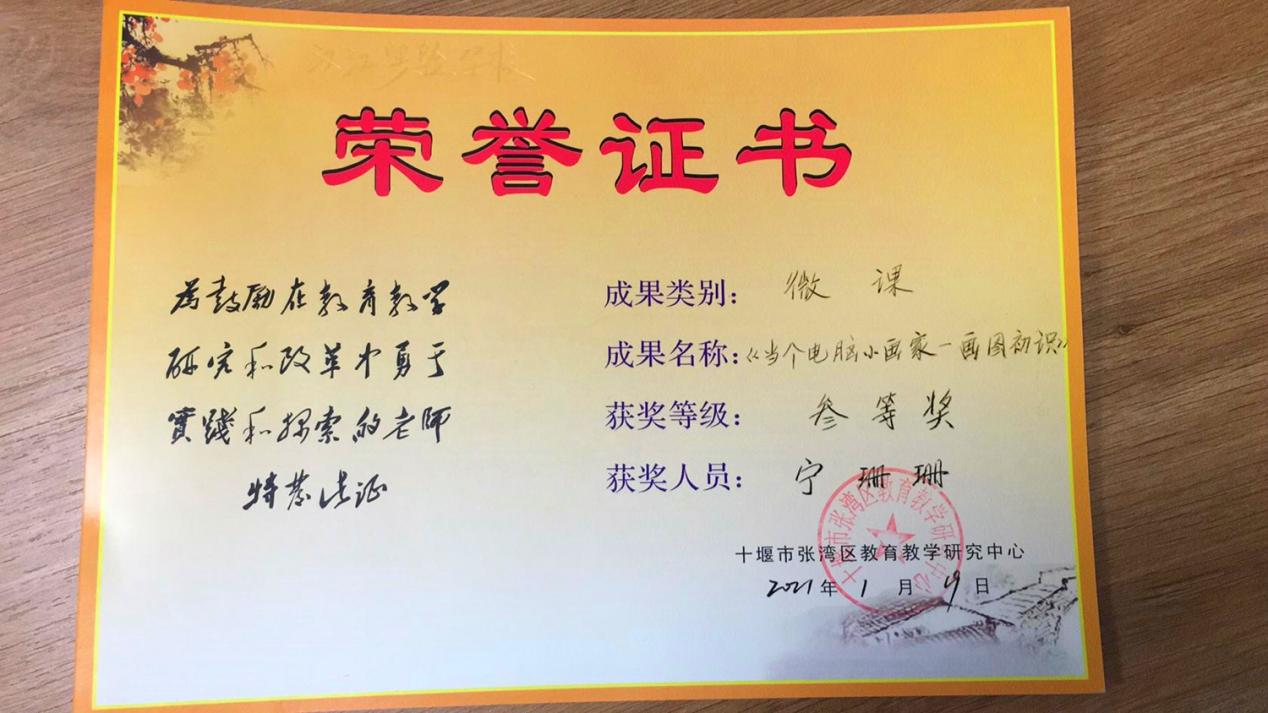 汉江实验学校
荣誉证书
为鼓励在教育教学
研究和改革中勇于
實踐和探索的老师
特發此证
成果类别：微课
成果名称：《当个电脑小画家一画图初识》
获奖等级：叁等奖
获奖人员：宁珊珊
十堰市张湾区教育教学研究中心
十堰市张湾区教育教学研究中心
2021年1月19日